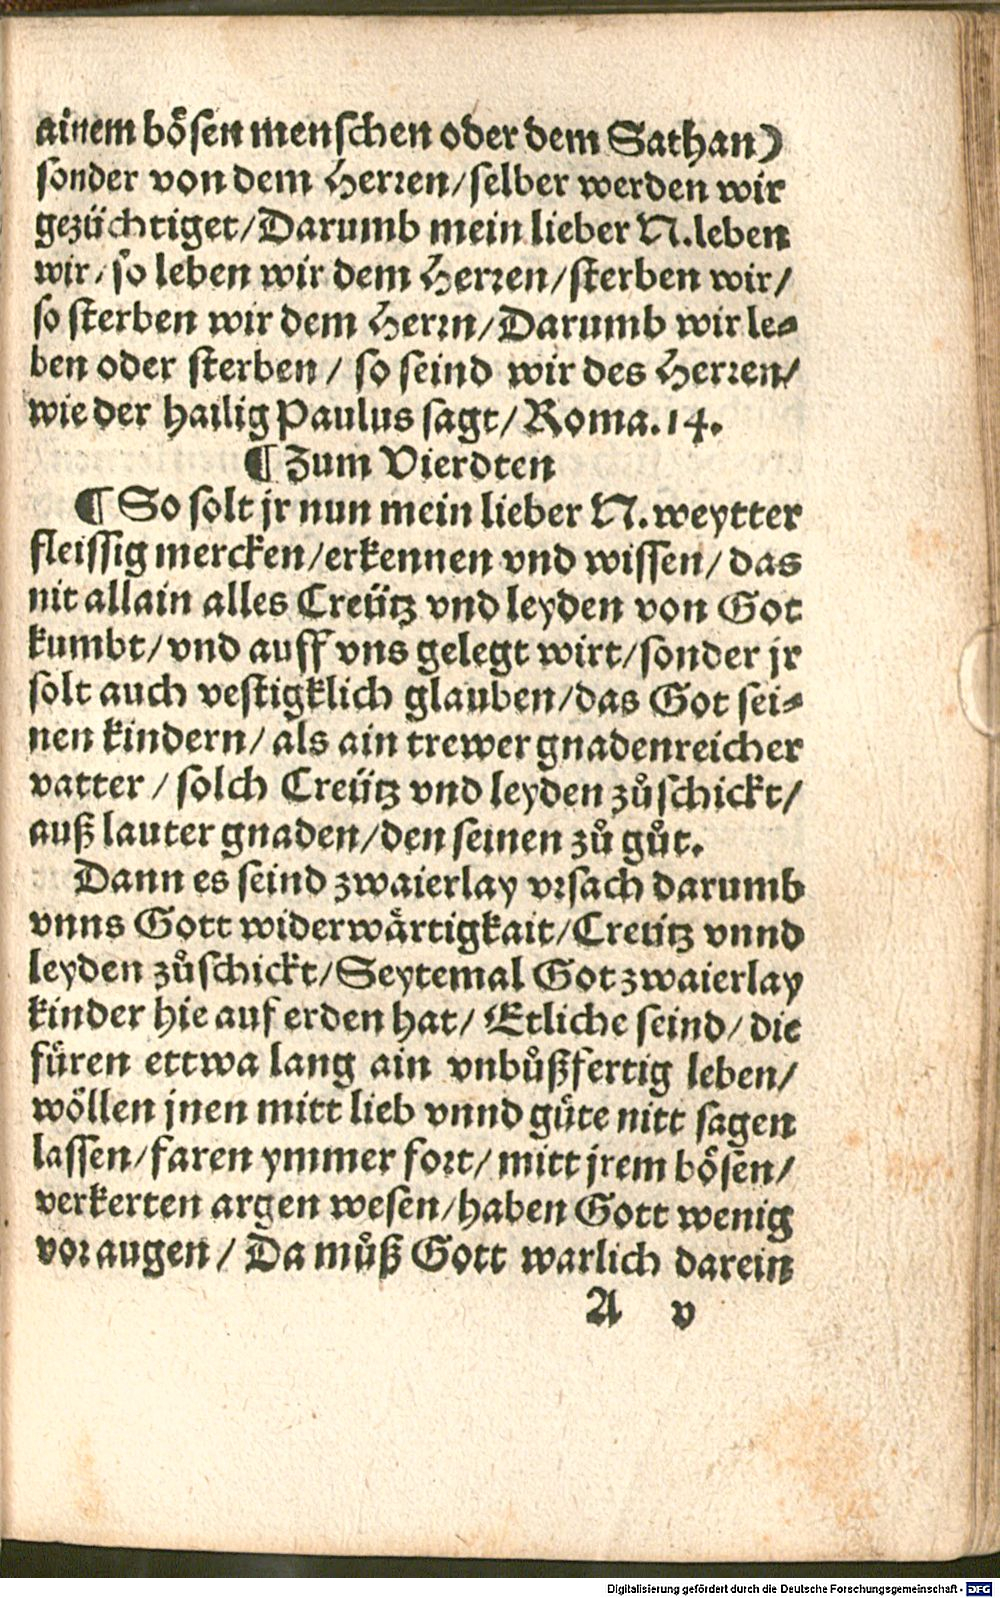 ainem bösen menschen oder dem Sathan)
sonder von dem Herren/selber werden wir
gezüchtiget/Darumb mein lieber N.leben
wir/so leben wir dem Herren/sterben wir/
so sterben wir dem Herrn/Darumb wir le⸗
ben oder sterben/ so seind wir des Herren/
wie der hailig Paulus sagt/Roma.14.
¶ Zum Vierdten
¶ So solt jr nun mein lieber N.weytter
fleissig mercken/erkennen vnd wissen/das
nit allain alles Creütz vnd leyden von Got
kumbt/vnd auff vns gelegt wirt/sonder jr
solt auch vestigklich glauben/das Got sei⸗
nen kindern/als ain trewer gnadenreicher
vatter/solch Creütz vnd leyden zůschickt/
auß lauter gnaden/den seinen zů gůt.
Dann es seind zwaierlay vrsach darumb
vnns Gott widerwärtigkait/Creütz vnnd
leyden zůschickt/Seytemal Got zwaierlay
kinder hie auf erden hat/ Etliche seind/die
füren ettwa lang ain vnbůßfertig leben/
wöllen jnen mitt lieb vnnd güte nitt sagen
lassen/faren ymmer fort/mitt jrem bösen/
verkerten argen wesen/haben Gott wenig
vor augen/ Da můß Gott warlich darein
A v
Digitalisierung gefördert durch die Deutsche Forschungsgemeinschaft - DFG